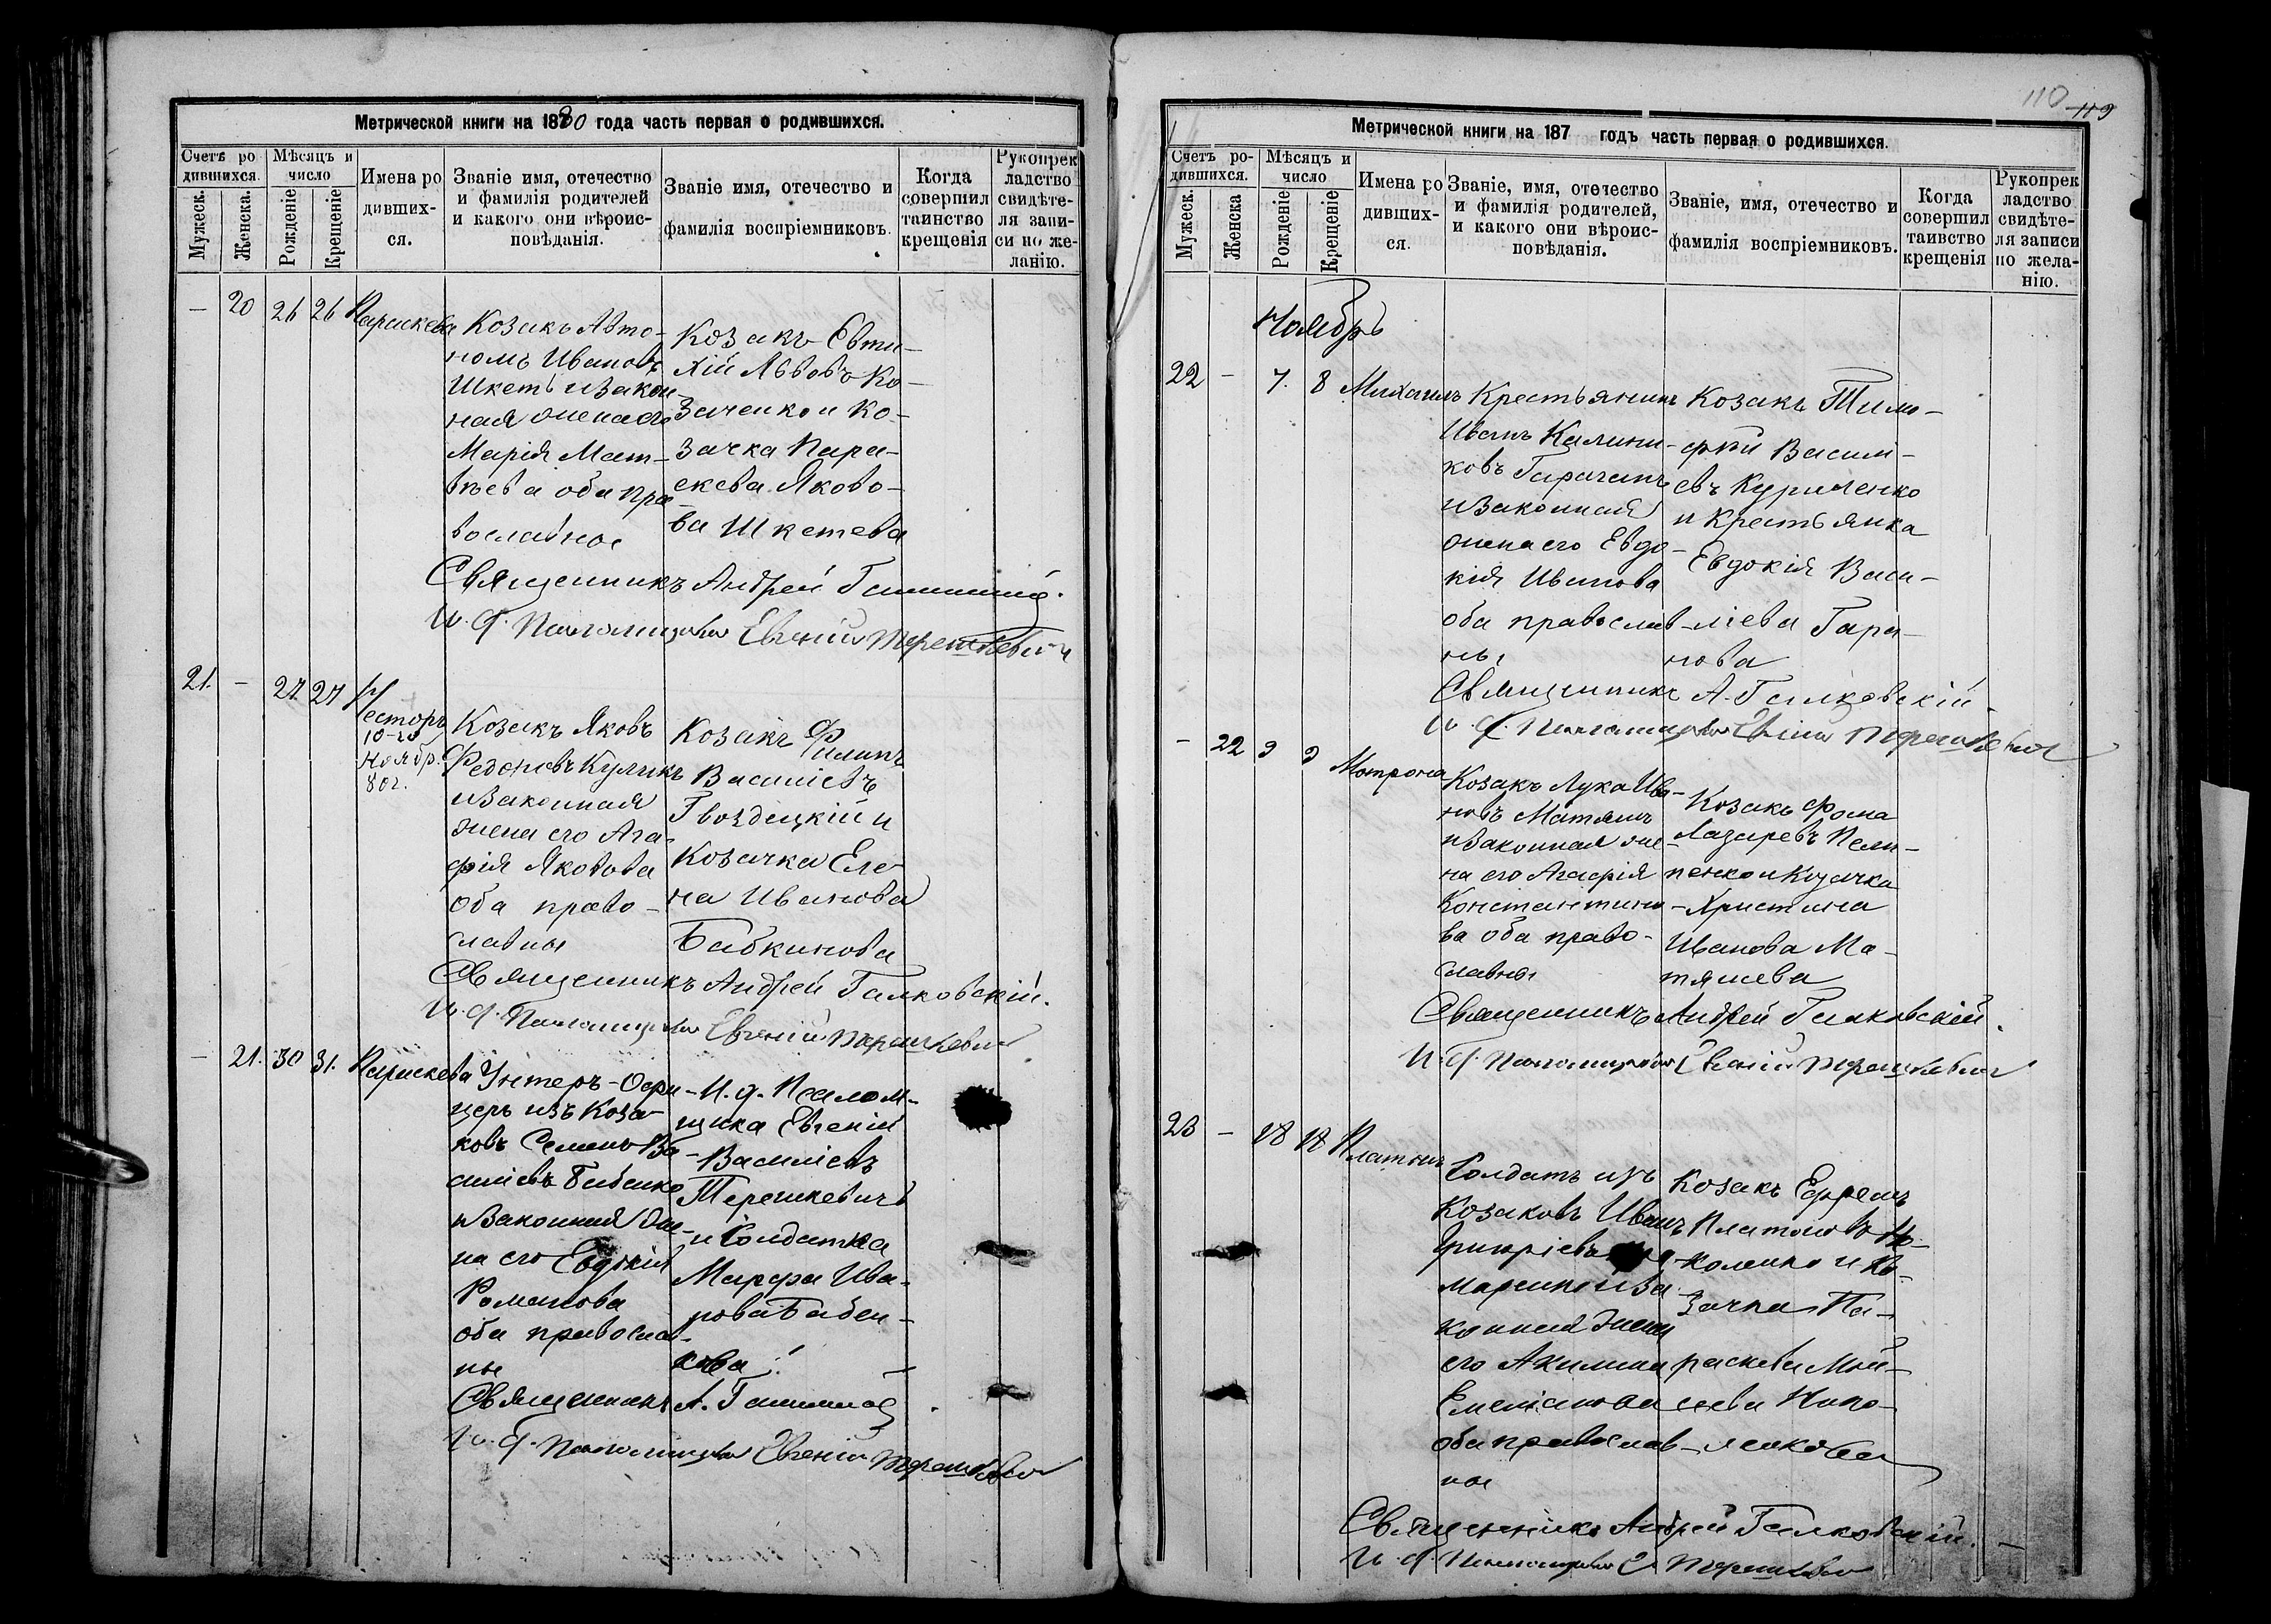 Метрической книги на 1880 года часть первая о родившихся.
Счетъ ро
дившихся.
Мужеск.
Женска.
Мѣсяцъ и
число
Рожденіе
Крещеніе
Имена ро
дивших-
ся.
Званіе имя, отечество
и фамилія родителей
и какого они вѣроис-
повѣданія.
Званіе имя, отечество и
фамилія воспріемниковъ.
Когда
совершил
таинство
крещенія
Рукопрек
ладство
свидѣте-
ля запи-
си по же-
ланію.
— 20 26 26 Параскева
Козакъ Авто-
номъ Ивановъ
Шкеть и закон-
ная жена его
Марія Мат-
вѣева оба пра-
вославные
Козакъ Евти-
хій Львовъ Ко-
заченко и ко-
зачка Пара-
скева Яково-
ва Шкетева
Священникъ Андрей Галковскій.
И. д. Псаломщика Евгеній Терешкевичъ
21. — 27 27 Несторъ
10-го
Ноябр.
80 г.
Козакъ Яковъ
Федоровъ Куликъ
и законная
жена его Ага-
фія Яковова
оба право-
славны
Козакъ Филипъ
Василіевъ
Гвоздецкій и
Козачка Еле
на Иванова
Бабкинова
Священникъ Андрей Галковскій.
И. д. Псаломщика Евгеній Терешкевичъ
— 21. 30 31. Параскева
Унтеръ-Офи-
церъ изъ Коза-
ковъ Семенъ Ва-
силіевъ Бабенко
и законная же-
на его Евдокія
Романова
оба православ-
ны
И. д. Псалом-
щика Евгеній
Василіевъ
Терешкевичъ
и Солдатка
Марфа Ива-
нова Бабен-
кова
Священникъ А. Галковскій
И. д. Псаломщика Евгеній Терешкевичъ
110 119
Метрической книги на 187 годъ часть первая о родившихся.
Счетъ ро-
дившихся.
Мужеск.
Женска
Мѣсяцъ и
число
Рожденіе
Крещеніе
Имена ро
дивших-
ся.
Званіе, имя, отечество
и фамилія родителей,
и какого они вѣроис-
повѣданія.
Званіе, имя, отечество и
фамилія воспріемниковъ.
Когда
совершил
таивство
крещенія
Рукопрек
ладство
свидѣте-
ля записи
по жела-
нію.
Ноябрь
22 — 7. 8 Михаилъ
Крестьянинъ
Иванъ Калини-
ковъ
и законная
жена его Евдо-
кія Иванова
оба православ-
ны
Козакъ Тимо-
фей Василі-
евъ Куриленко
и Крестьянка
Евдокія Васи-
ліева Гара-
нова
Священникъ А. Галковскій
И. д. Псаломщика Евгеній Терешкевичъ
— 22 9 9 Матрона
Козакъ Лука Ива-
новъ Матяшъ
и законная же-
на его Агафія
Константино-
ва оба право-
славны
Козакъ Фома
Лазаревъ Пели-
пенко и Козачка
Христина
Иванова Ма-
тяшева
Священникъ Андрей Галковскій.
И. д. Псаломщика Евгеній Терешкевичъ
23 — 18 18 Платонъ
Солдатъ изъ
Козаковъ Иванъ
Григоріевъ
и за-
конная жена
его Акилина
Емеліанова
оба православ-
ны
Козакъ Ефремъ
Платоновъ Ни-
коленко и Ко-
зачка Па-
раскева Мой-
сеева Нико-
ленкова
Священникъ Андрей Галковскій.
И. д. Псаломщика Е Терешкевичъ